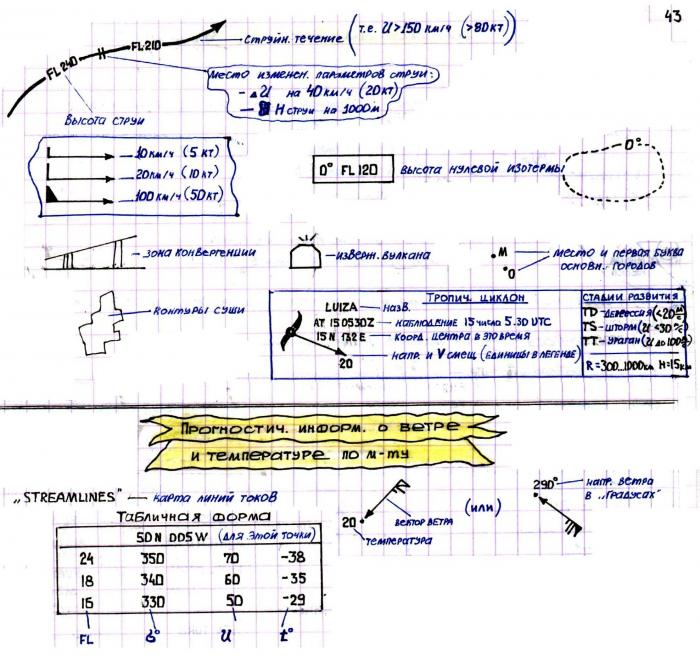 43
Струйн. течение (т.е. U>150 км/ч (>80 кт)
FL240 FL210
Место изменен. параметров струи:
- ΔU на 40 км/ч (20 кт)
- H струи на 1000 м
Высота струи
10 км/ч (5 кт)
20 км/ч (10 кт)
100 км/ч (50 кт)
0° FL120 высота нулевой изотермы
0°
зона конвергенции
изверж. вулкана
м
о
место и первая буква
основн. городов
контуры суши
Тропич. циклон
LUIZA — назв.
AT 150530Z — наблюдение 15 числа 5.30 UTC
15N 132E — коорд. центра в это время
напр. и V смещ. (единицы в легенде)
20
Стадии развития
TD - депрессия (<20 м/с)
TS - шторм (U <30 м/с)
TT - ураган (U до 100 м/с)
R=300...1000км H=15км
Прогностич. информ. о ветре
и температуре по м-ту
„STREAMLINES" — карта линий токов
Табличная форма
50N 005W (для этой точки)
24 350 70 -38
18 340 60 -35
15 330 50 -29
FL δ° U t°
20
вектор ветра
температура
(или)
290° напр. ветра
в „градусах"